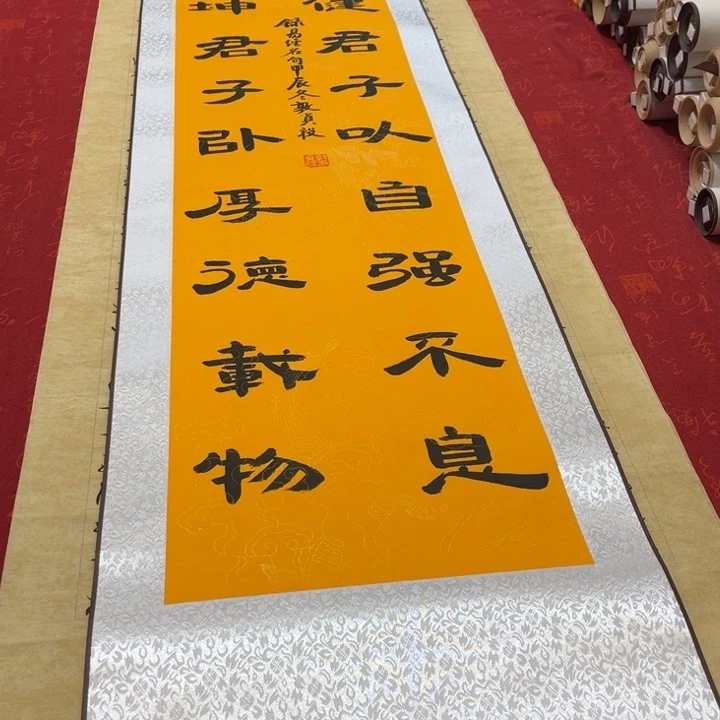 健君子以自强不息
坤君子以厚德載物
録易经名句甲辰冬敦貞